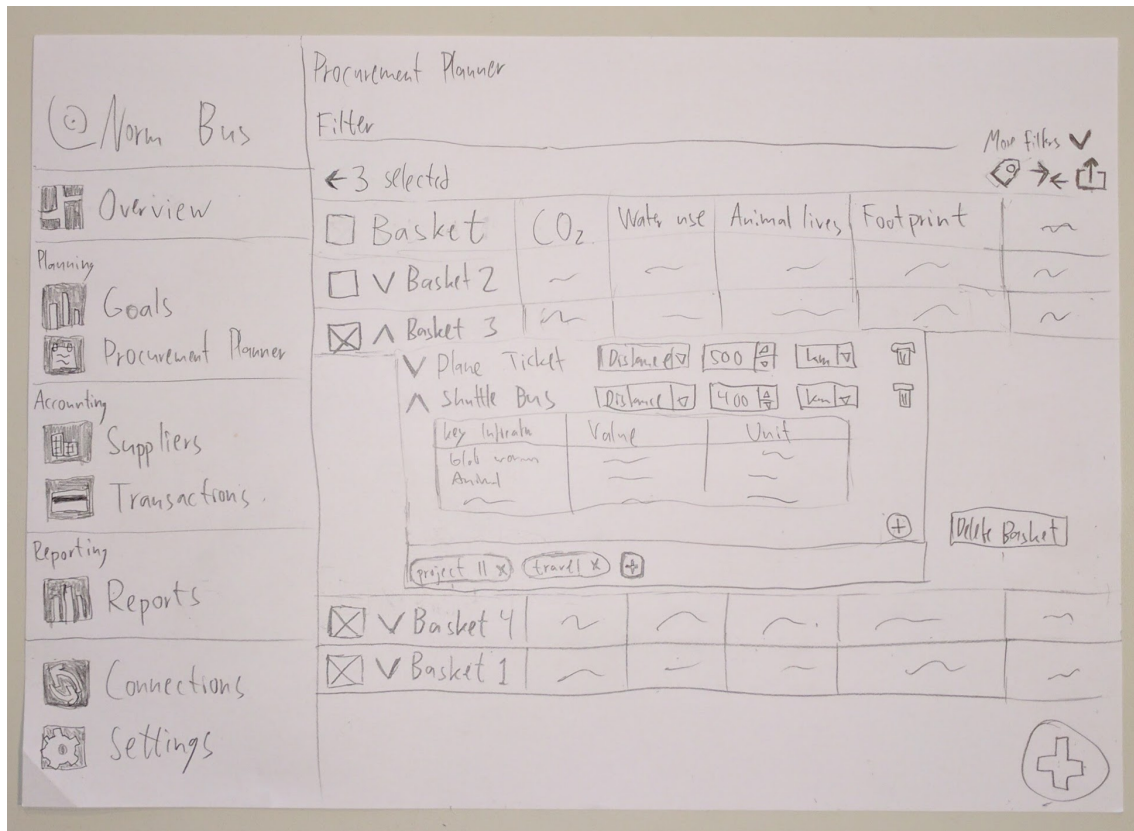 Norm Bus
Overview
Planning
Goals
Procurement Planner
Accounting
Suppliers
Transactions
Reporting
Reports
Connections
Settings
Procurement Planner
Filter
More filters
3 selected
Basket CO2 Water use Animal lives Footprint
Basket 2
Basket 3
Plane Ticket Distance 500 km
Shuttle Bus Distance 400 km
Key Value Unit
Animal
Delete Basket
project 11 x travel x
Basket 4
Basket 1